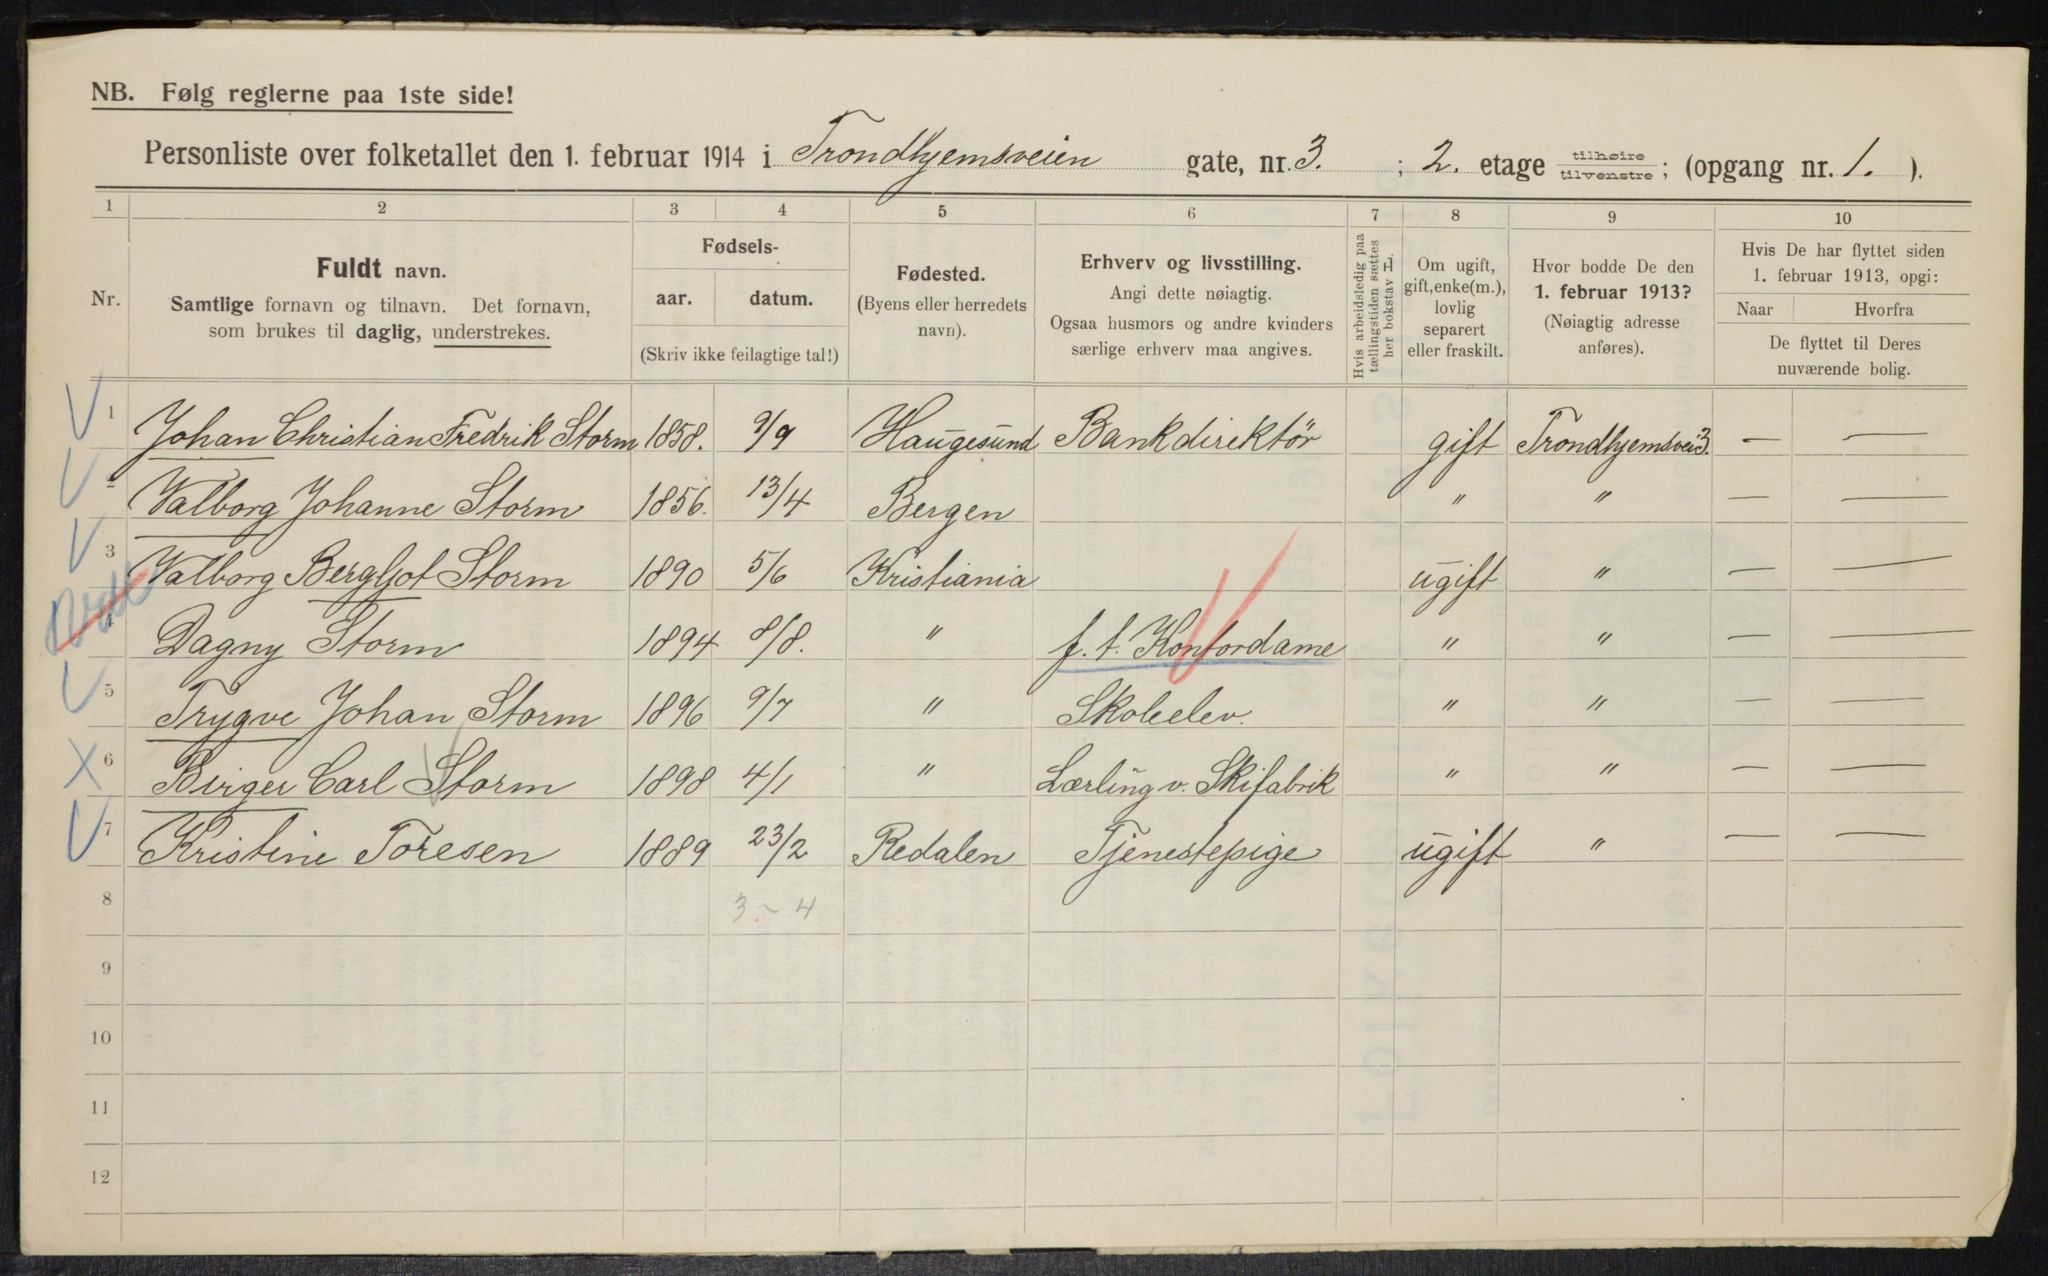 NB. Følg reglerne paa 1ste side!
Personliste over folketallet den 1. februar 1914 i Trondhjemsveien gate, nr. 3. ; 2. etage tilhøire tilvenstre ; (opgang nr. 1. ).
1 2 3 4 5 6 7 8 9 10
Nr.
Fuldt navn.
Samtlige fornavn og tilnavn. Det fornavn,
som brukes til daglig, understrekes.
Fødsels-
aar. datum.
(Skriv ikke feilagtige tal!)
Fødested.
(Byens eller herredets
navn).
Erhverv og livsstilling.
Angi dette nøiagtig.
Ogsaa husmors og andre kvinders
særlige erhverv maa angives.
Hvis arbeidsledig paa
tællingstiden sættes
her bokstav L.
Om ugift,
gift, enke(m.),
lovlig
separert
eller fraskilt.
Hvor bodde De den
1. februar 1913?
(Nøiagtig adresse
anføres).
Hvis De har flyttet siden
1. februar 1913, opgi:
Naar Hvorfra
De flyttet til Deres
nuværende bolig.
1 Johan Christian Fredrik Storm 1858. 9/9 Haugesund Bankdirektör gift Trondhjemsvei 3. — —
2 Valborg Johanne Storm 1856. 13/4 Bergen " " — —
3 Valborg Bergljot Storm 1890 5/6 Kristiania ugift " — —
4 Dagny Storm 1894 8/8. " f.t. Kontordame " " — —
5 Trygve Johan Storm 1896 9/7 " Skoleelev. " " — —
6 Birger Carl Storm 1898 4/1 " Lærling v. Skifabrik " " — —
7 Kristine Toresen 1889 23/2 Redalen Tjenestepige ugift " — —
8 3 – 4
9
10
11
12